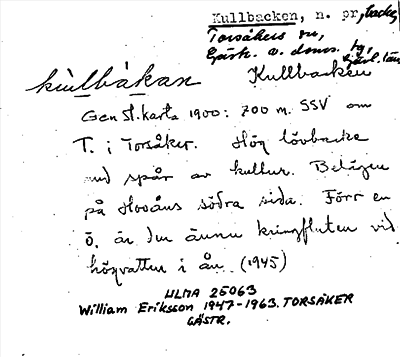 Kullbacken, n. pr., backe,
Torsåkers sn,
Gästr. ö. doms. tg,
Gävl. län
kullbakan Kullbacken
Gen St. karta 1900: 700 m. SSV om
T. i Torsåker. Hög lövbacke
med spår av kultur. Belägen
på Hoåns södra sida. Förr en
ö. är den ännu kringfluten vid
högvatten i ån. (1945)
ULMA 25063
William Eriksson 1947-1963. TORSÅKER
GÄSTR.